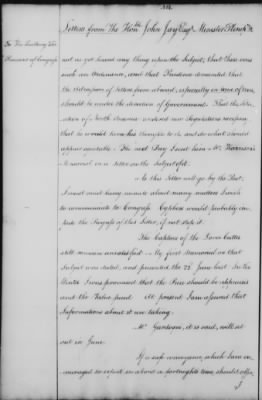 Letters from The Honble John Jay Esqr Minister Plenip.
To His Excellency the
President of Congress
not as yet heard any thing upon the Subject; that there was
such an Ordinance, and that Prudence demanded that
the of from abroad, especially in time of war,
should be under the direction of Government. That the
of North America introduced new Regulations
that he would turn his thoughts to it, and do what should
appear equitable. The next Day I sent him Mr. Harrison's
Memorial, in a letter on the Subject of it.
As this Letter will go by the Post,
I must omit being minute about many matters I wish
to communicate to Congress. Cyphers would probably im-
pede the Progress of this Letter, if not stop it.
The Capture of the Dover Cutter
still remains unsatisfied. My first Memorial on that
Subject was dated, and presented the 22d June last. In the
Winter I was promised that the Prize should be appraised
and the Value paid. At present I am assured that
Informations about it are taking.
Mr. Gardoqui, it is said, will set
out in June.
If a safe conveyance, which I am en-
couraged to expect in about a fortnight's time, should offer,
I